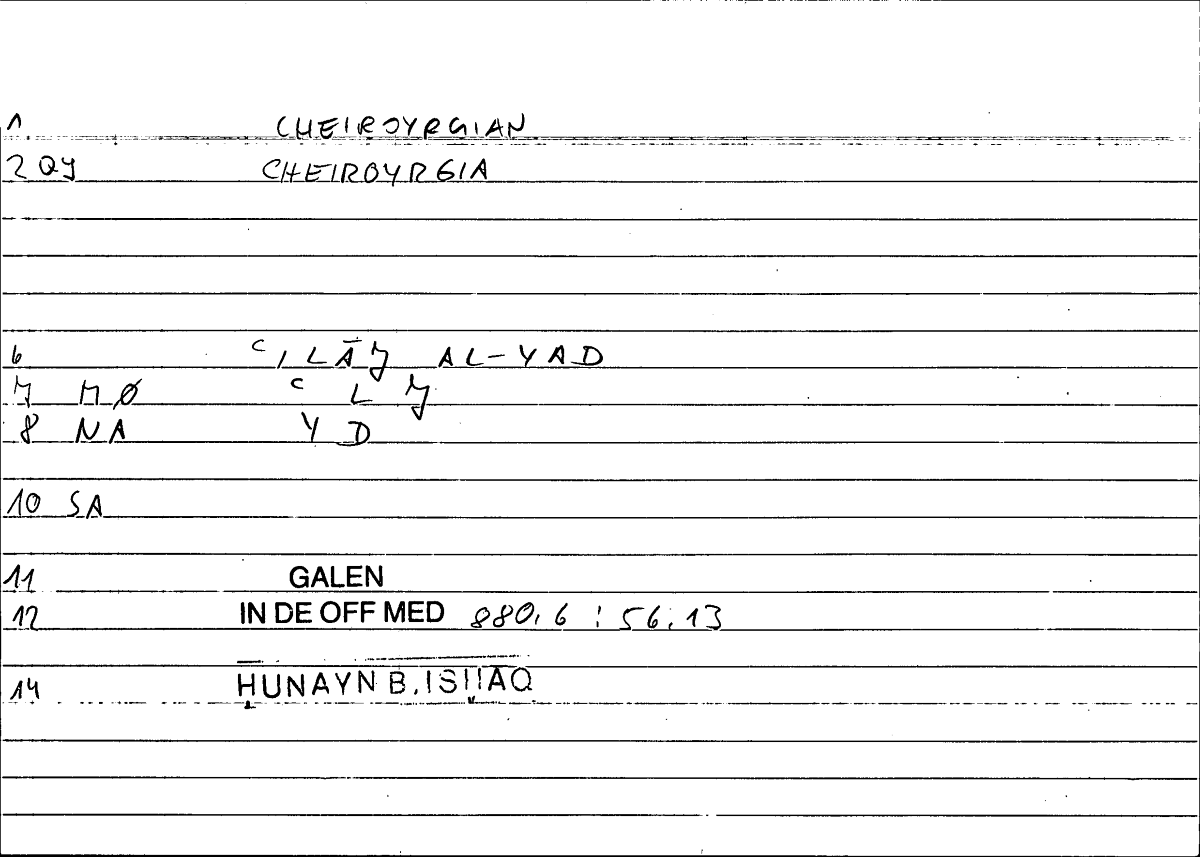 1 CHEIROYRGIAN
2 QY CHEIROYRGIA
6 ʿILĀJ AL-YAD
7 MØ ʿ L J
8 NA Y D
10 SA
11 GALEN
12 IN DE OFF MED 880,6 : 56.13
14 HUNAYN B. ISHAQ